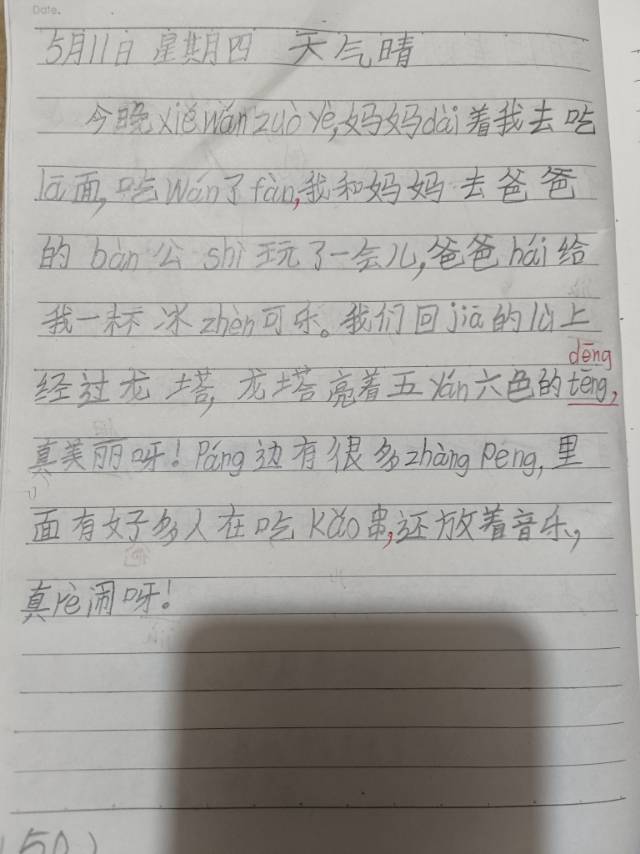 Date.
5月11日 星期四 天气晴
今晚xiě wán zuò yè,妈妈dài着我去吃
lā面,吃wán了fàn,我和妈妈去爸爸
的 bàn 公 shì 玩了一会儿,爸爸hái给
我一杯冰zhèn可乐。我们回jiā的lù上
dēng
经过龙塔,龙塔亮着五yán六色的tēng,
真美丽呀!Páng边有很多zhàng péng,里
面有好多人在吃kǎo串,还放着音乐,
真rè闹呀!
(50)